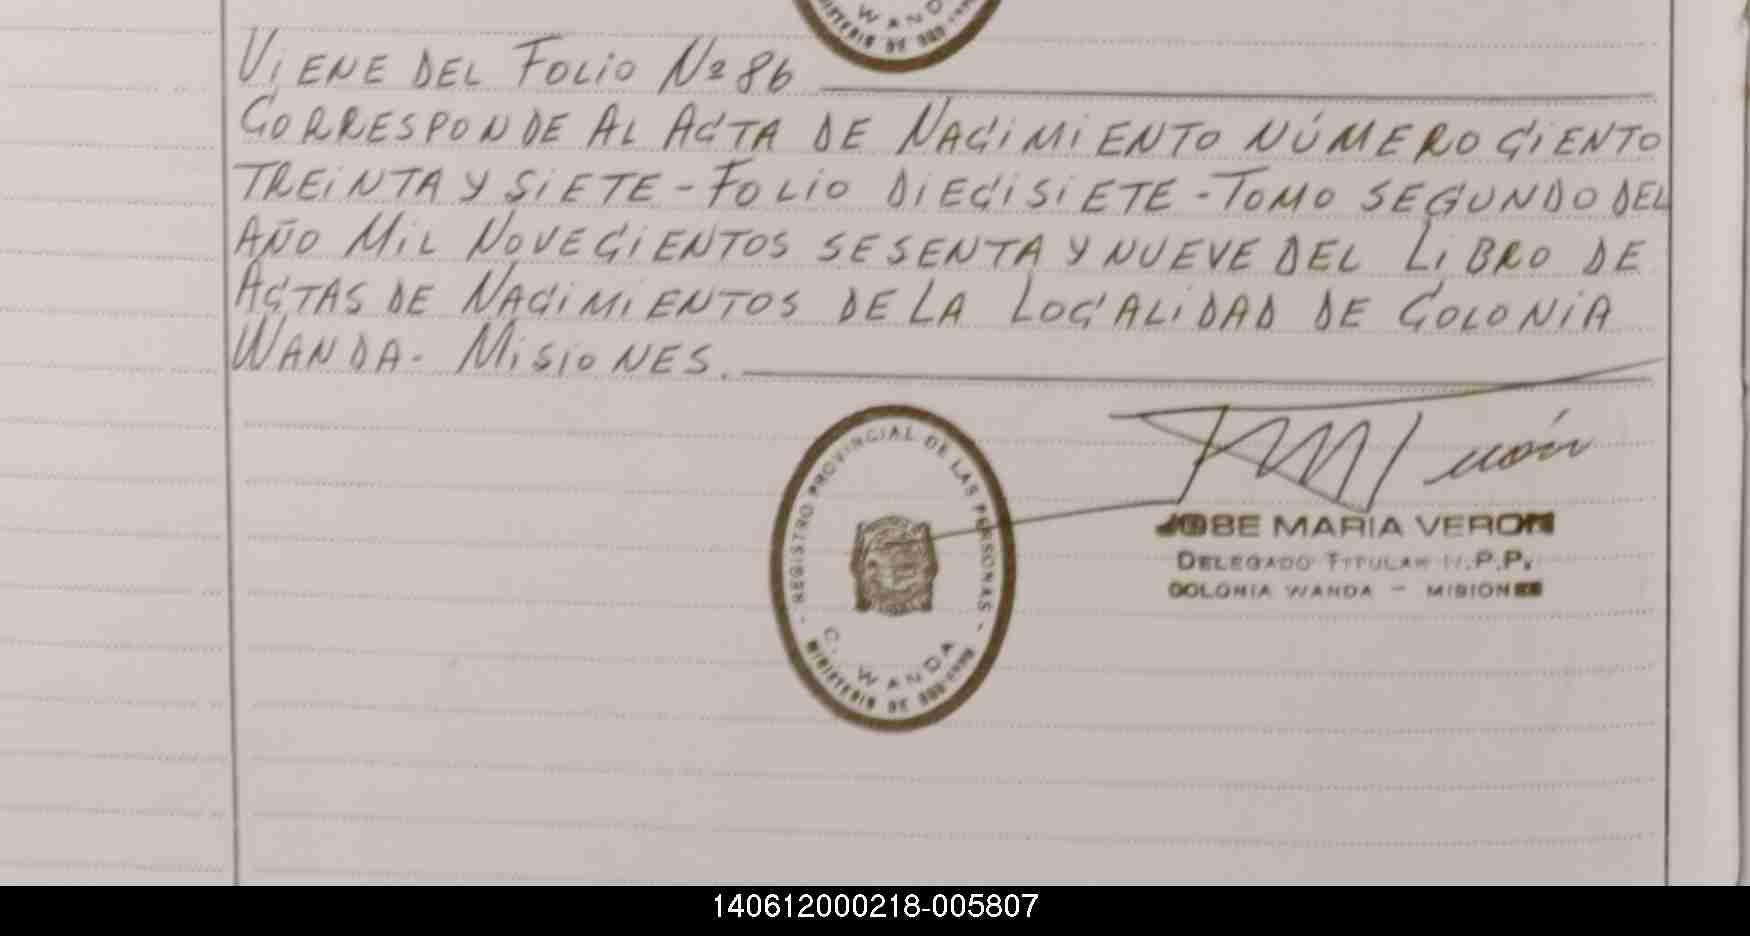 WANDA
VIENE DEL FOLIO Nº 86
CORRESPONDE AL ACTA DE NACIMIENTO NÚMERO CIENTO
TREINTA Y SIETE - FOLIO DIECISIETE - TOMO SEGUNDO DEL
AÑO MIL NOVECIENTOS SESENTA Y NUEVE DEL LIBRO DE
ACTAS DE NACIMIENTOS DE LA LOCALIDAD DE COLONIA
WANDA - MISIONES.
- REGISTRO PROVINCIAL DE LAS PERSONAS -
C. WANDA
MINISTERIO DE
JOSE MARIA VERON
DELEGADO TITULAR P.P.
COLONIA WANDA - MISIONES
140612000218-005807